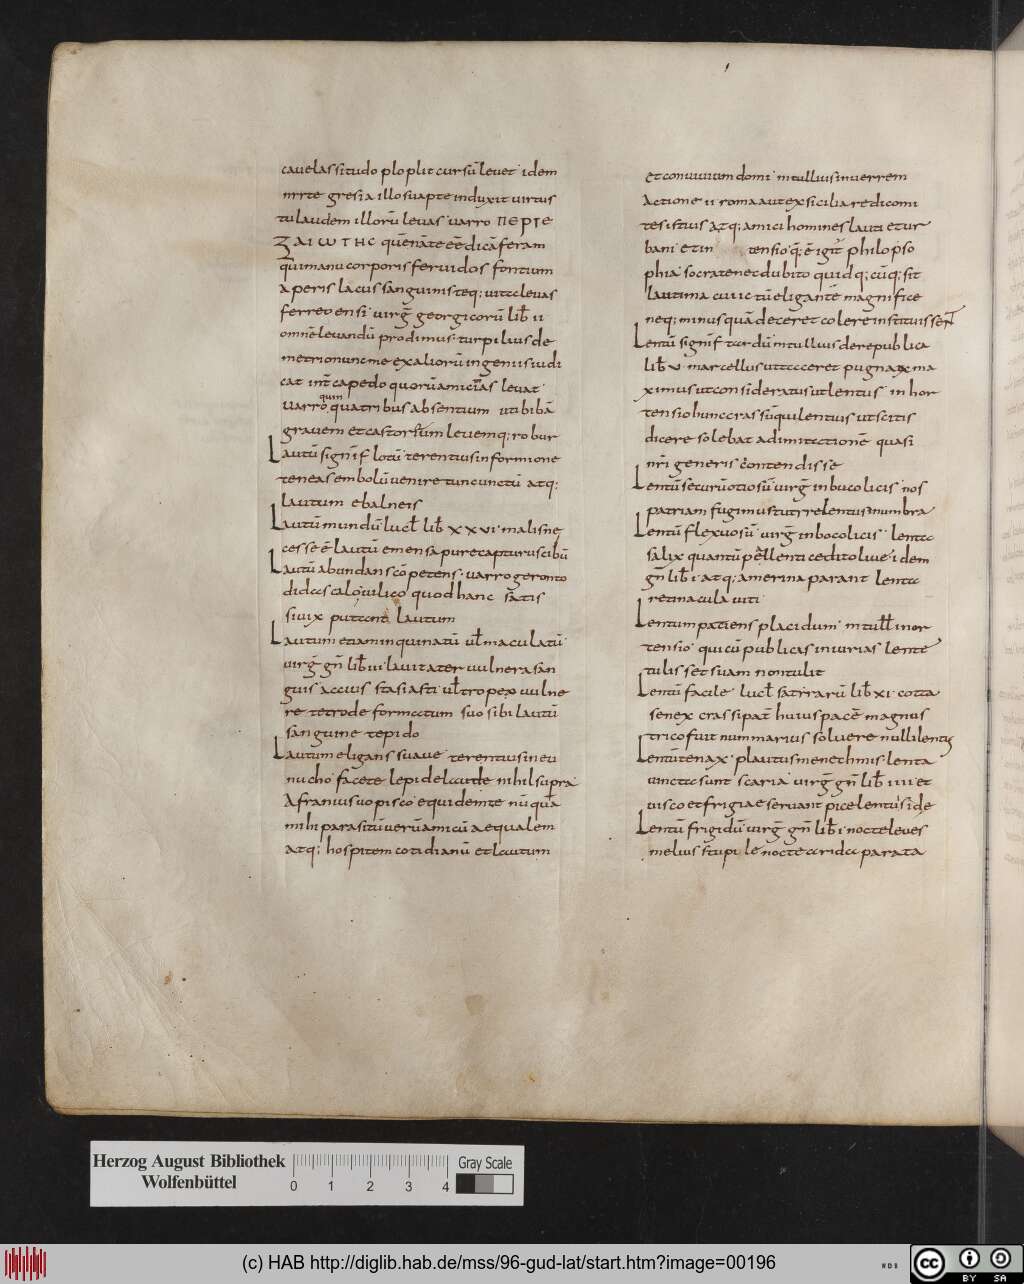 cavelassitudo ploplit cursū levet idem
nrrte gresia illosuapte induxit virtus
tu laudem illorū levas varro περτε
ζαιωτης quēnāteēēdicāferam
quimanu corporis fervidos fontium
aperis lacus sanguinis teq; vitaelevas
ferreo ensi virg̅ georgicorū lib̅ ii
omnēlevandū prodimus turpilius de
metrionuncme exaliorū ingeniis iudi
cat int̅capedo quorūamicitias levat
quin
varro quatribus absentium utibibā
gravem etcastorsum levemq; robur
Lautū signif̅ lotū terentius informione
teneas embolū venire tuncunctū atq;
lavtum ebalneis
Lautū mundū lucl̅ lib̅ xxvi malisne
cesse ē lautū emensā pure capturus cibū
Lautū abundans cōpetens varro geronto
didascalo vilico quod hanc satis
sivix putate lautum
Lautum etiam inquinatū ul̅ maculatū
virg̅ gn̅ lib̅ iii lavit ater vulnera san
guis accius stasiasti ul̅ tropeo vulne
re tetrode formatum suo sibi lautū
sanguine tepido
Lautum eligans suave terentius in eu
nucho facete lepide laute nihil supra
Afranius vopisco equidemte nūquā
mihi parasitū verū amicū aequalem
atq; hospitem cotidianū et lautum
et convivium domi m tullius inverrem
Actione ii roma aut exsicilia redicomi
tes istius atq; amici homines lauti etur
bani et in tensio q; ē igit̅ philopso
phia socrate nec dubito quid q; cūq; sit
lautima cui ic tū eligantē magnifice
neq; minus quā deceret colere instituissent
Lentū signif̅ tardū m tullius derepublica
lib̅ v marcellus ut acer et pugnax ma
ximus ut consideratus ut lentus in hor
tensio hunc crassū quilentius ut scitis
dicere solebat adimitationē quasi
nr̅i generis contendisse
Lentū securū otiosū virg̅ in bucolicis nos
patriam fugimus tu tyre lentus in umbra
Lentū flexuosū virg̅ in bocolicis lenta
salix quantū pallenti cedit olivae idem
gn̅ lib̅ i atq; amerina parant lenta
retinacula viti
Lentum patiens placidum m tull̅ in or
tensio qui cū publicas iniurias lente
tulisset suam non tulit
Lentū facile lucl̅ satirarū lib̅ xi cotta
senex crassi pat̅ huius pacē magnus
trico fuit nummarius solvere nulli lentus
Lentū tenax plautus menechmis lenta
vinctasunt scaria virg̅ gn̅ lib̅ iiii et
visco et frigiae servant pice lentus ide
Lentū frigidū virg̅ gn̅ lib̅ i nocte leves
melius stupile nocte arida parata
Herzog August Bibliothek
Wolfenbüttel
0 1 2 3 4
Gray Scale
(c) HAB http://diglib.hab.de/mss/96-gud-lat/start.htm?image=00196
cc BY SA